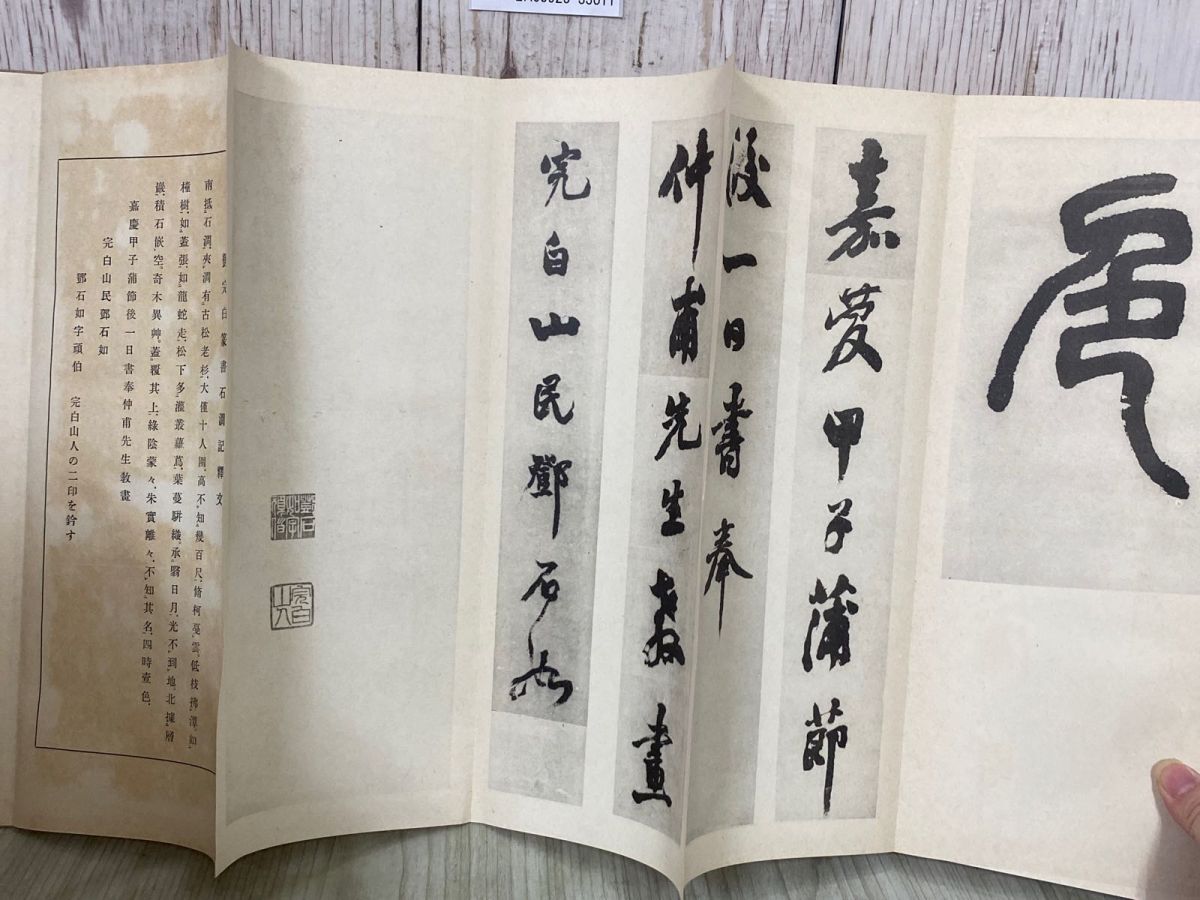 色
嘉慶甲子蒲節
後一日書奉
仲甫先生教畫
完白山民鄧石如
鄧石如字頑伯
完白山人
鄧完白篆書石澗記釋文
南抵石澗、夾澗有古松老杉、大僅十人圍、高不知幾百尺、脩柯戞雲、低枝拂潭、如
橦樹、如蓋張、如龍蛇走、松下多灌叢蘿蔦、葉蔓駢織、承翳日月、光不到地、北據層
嵌、積石嵌空、奇木異艸、蓋覆其上、綠陰蒙々、朱實離々、不知其名、四時壹色、
嘉慶甲子蒲節後一日書奉仲甫先生教畫
完白山民鄧石如
鄧石如字頑伯　完白山人の二印を鈐す